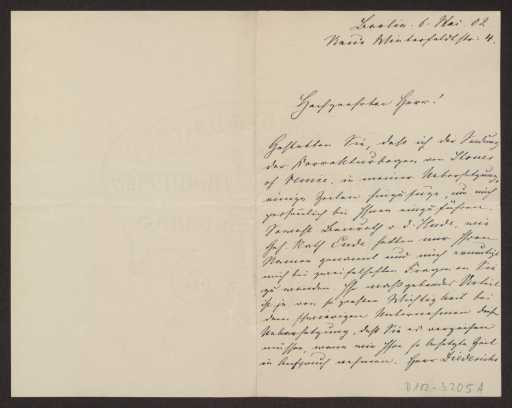 Berlin. 6. Mai. 02
Neue Winterfeldtstr. 4.
Hochgeehrter Herr!
Gestatten Sie, daß ich der Sendung
der Korrekturbogen von Stones
of Venice, in meiner Uebersetzung,
einige Zeilen hinzufüge, um mich
persönlich bei Ihnen einzuführen.
Sowohl Baurath v. d. Hude, wie
Geh. Rath Ende hatten mir Ihren
Namen genannt und mich ermutigt
mich bei zweifelhaften Fragen an Sie
zu wenden. Ihr maßgebendes Urteil
ist ja von so großer Wichtigkeit bei
dem schwierigen Unternehmen dieser
Uebersetzung, daß Sie es verzeihen
müssen, wenn wir Ihre so besetzte Zeit
in Anspruch nehmen. Herr Diederichs
D 102-3205A